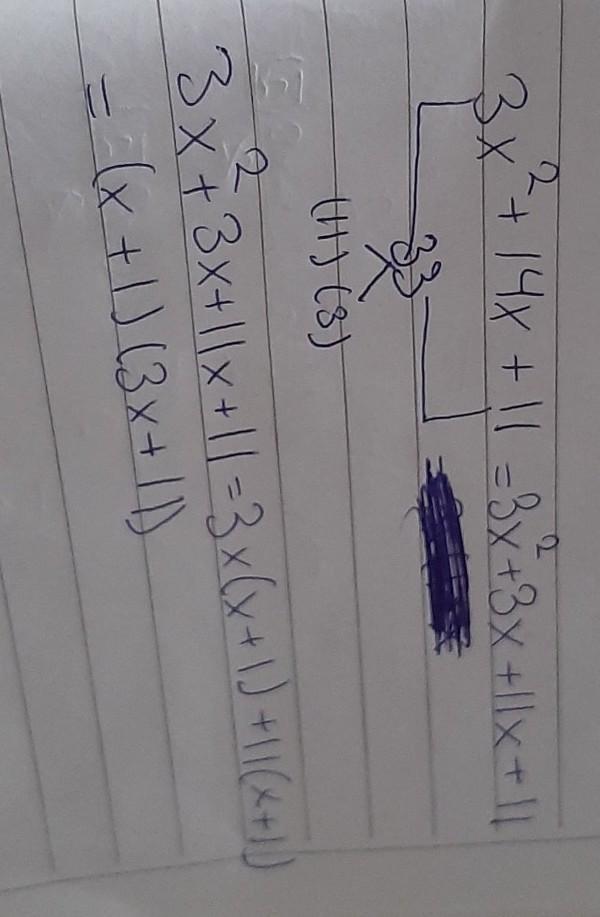 3x² + 14x + 11 = 3x² + 3x + 11x + 11
33
(11) (3)
3x² + 3x + 11x + 11 = 3x(x + 1) + 11(x + 1)
= (x + 1) (3x + 11)